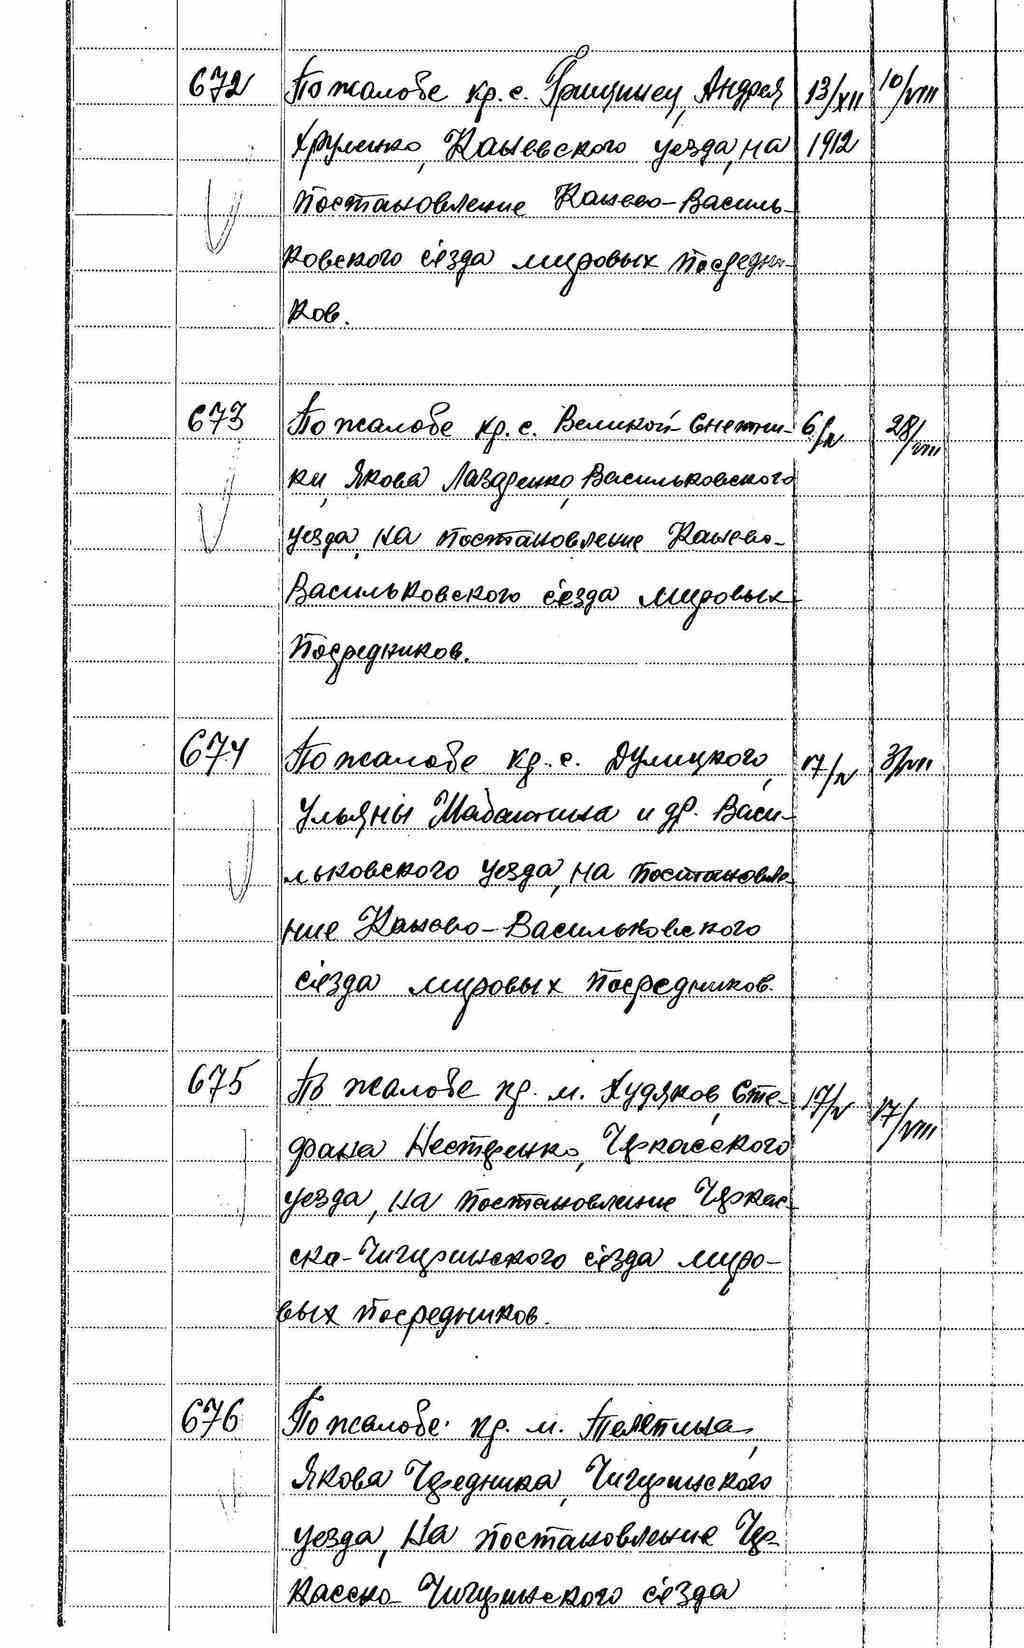 672 По жалобе кр. с. Грищинец, Андрея 13/XII 10/VIII
Хруленко, Каневского уезда, на 1912
постановление Канево-Василь-
ковского сьезда мировых посредни-
ков.
673 По жалобе кр. с. Великой Снетин-
ки, Якова Лазаренко, Васильковского
уезда, на постановление Канево-
Васильковского сьезда мировых
посредников.
674 По жалобе кр. с. Дулицкого,
Ульяны и др. Васи-
льковского уезда, на постановле-
ние Канево-Васильковского
сьезда мировых посредников.
675 По жалобе кр. м. Худяков, Сте- 17/V 17/VIII
фана Нестеренко, Черкасского
уезда, на постановление Черкас-
ско-Чигиринского сьезда миро-
вых посредников.
676 По жалобе кр. м. Телепина,
Якова Чередника, Чигиринского
уезда, на постановление Чер-
касско-Чигиринского сьезда